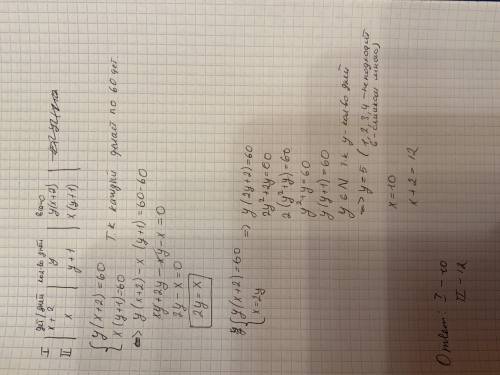 дет/день кол-во дней всего
I | x + 2 | y | y(x+2) |
II | x | y + 1 | x(y+1) |
{ y(x+2)=60
x(y+1)=60
Т.к каждый делает по 60 дет.
=> y(x+2) - x(y+1) = 60-60
xy+2y - xy - x = 0
2y - x = 0
2y = x
{ y(x+2)=60
x=2y
=> y(2y+2)=60
2y²+2y=60
2(y²+y)=60
y²+y=60
y(y+1)=60
y ∈ N т.к y - кол-во дней
=> y = 5 (1,2,3,4 - не подходит
6 - слишком много)
x = 10
x + 2 = 12
Ответ: I - 10
II - 12